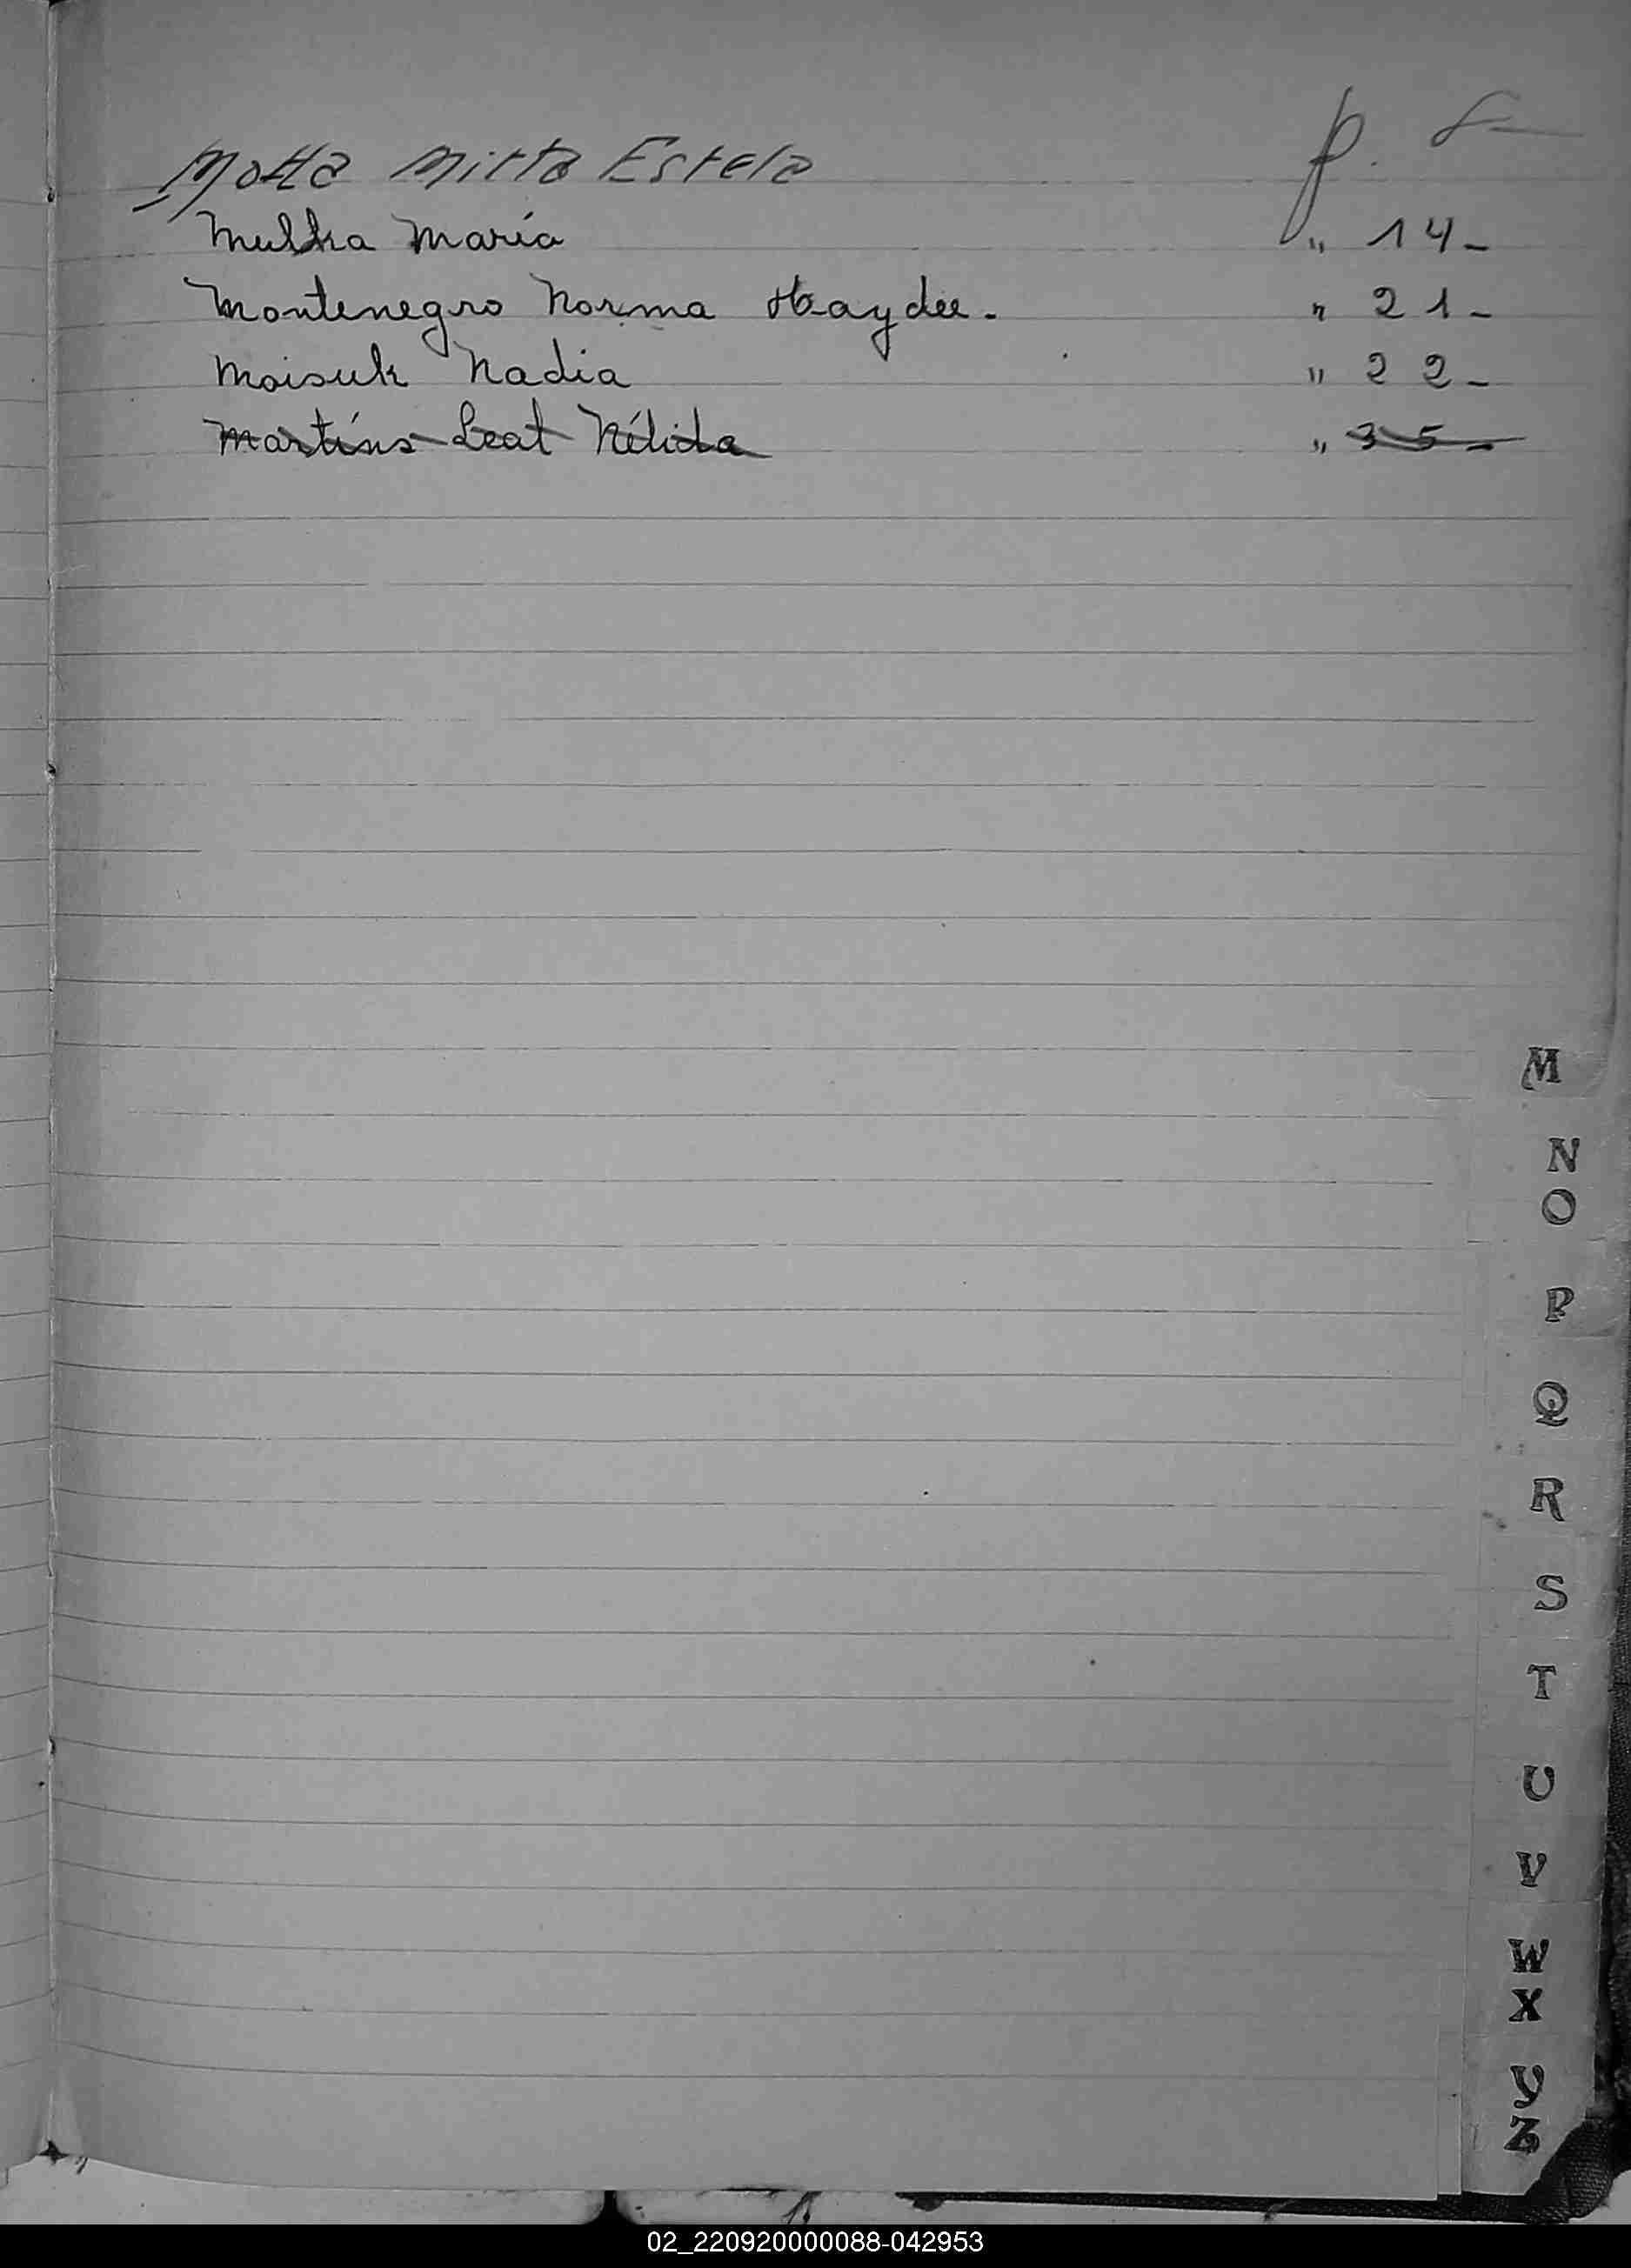 Motta Mirta Estela p.
María " 14-
Montenegro Norma Haydee. " 21-
Moisuk Nadia " 22-
Martíns Leat Nélida " 35-
M
N
O
P
Q
R
S
T
U
V
W
X
Y
Z
02_220920000088-042953